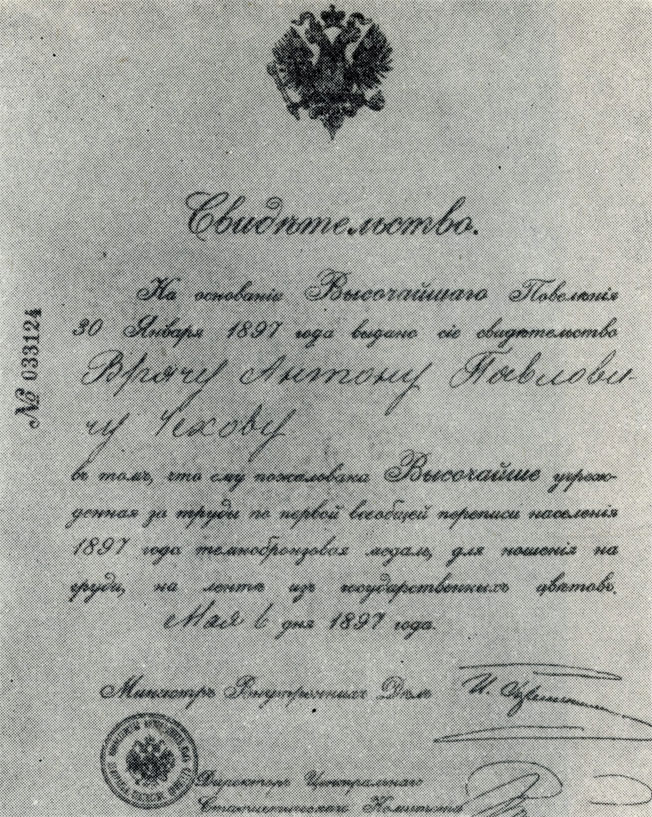 Свидѣтельство.
На основаніи Высочайшаго Повелѣнія
30 Января 1897 года выдано сіе свидѣтельство
Врачу Антону Павлови-
чу Чехову
въ томъ, что ему пожалована Высочайше учреж-
денная за труды по первой всеобщей переписи населенія
1897 года темнобронзовая медаль, для ношенія на
груди, на лентѣ изъ государственныхъ цвѣтовъ.
Мая 6 дня 1897 года.
Министръ Внутреннихъ Дѣлъ
Директоръ Центральнаго
Статистическаго Комитета
№ 033124